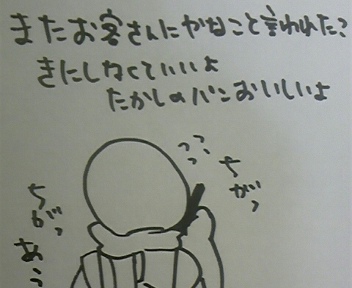 またお客さんにやなこと言われた?
きにしなくていいよ
たかしのパンおいしいよ
ちがっ
ちがっ
あっ